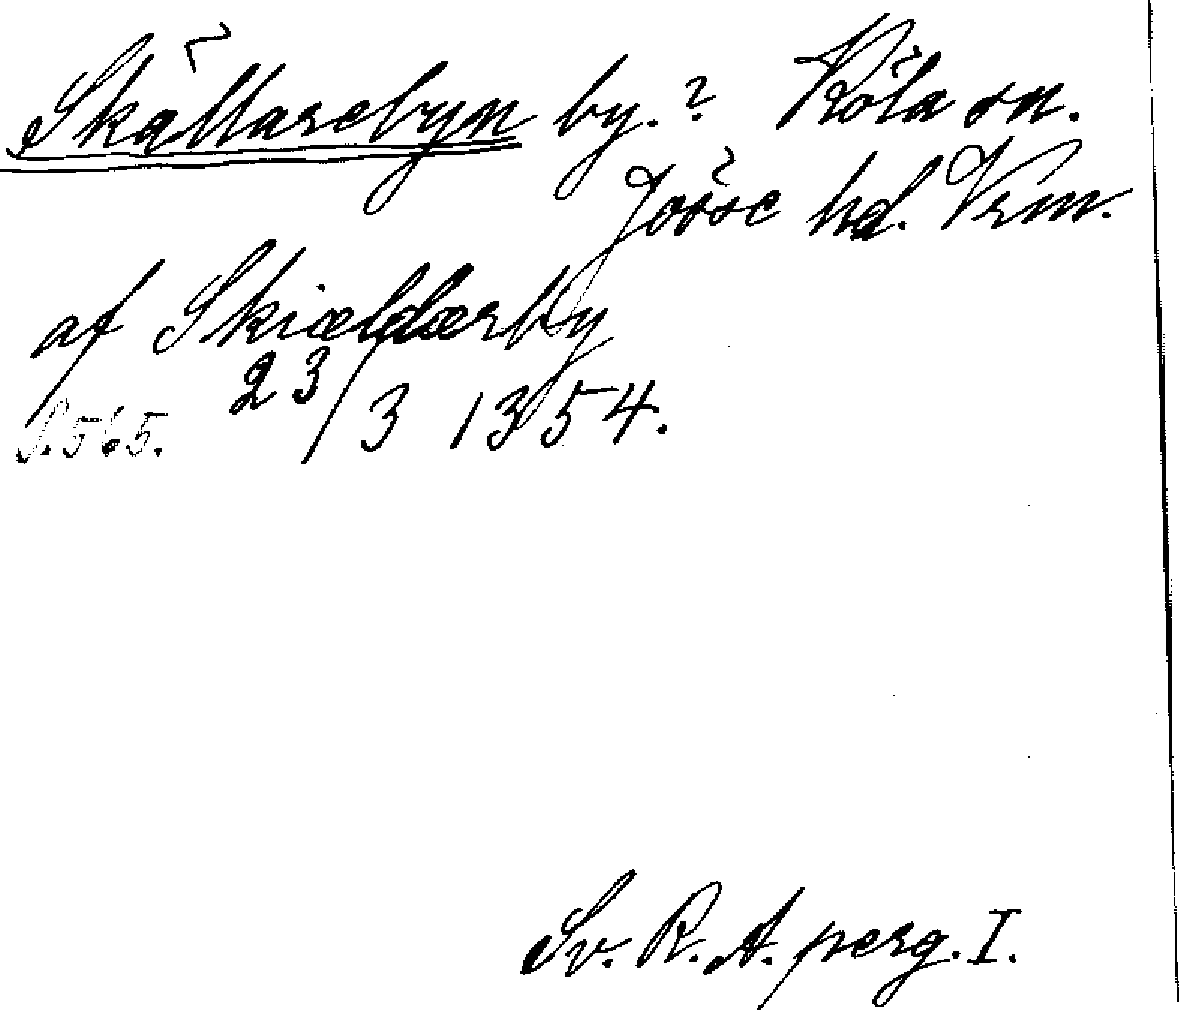 Skällarebyn by.? Köla sn.
Jösse hd. Vrm.
af Skiældærby
23/3 1354.
S. 565.
Sv. R. A. perg. I.